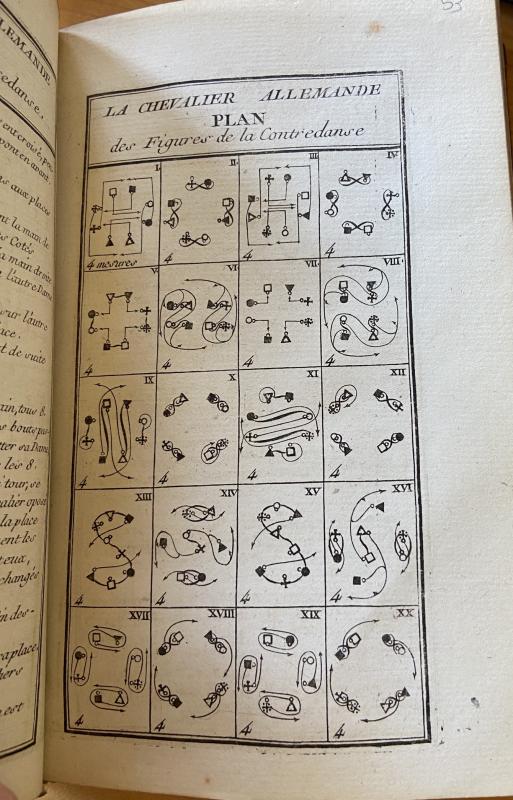 53
LA CHEVALIER ALLEMANDE
PLAN
des Figures de la Contredanse
I.
II.
III
IV
4 mesures
V.
VI
VII.
VIII.
4
4
4
4
IX
X
XI
XII
4
4
4
4
XIII
XIV
XV
XVI
4
4
4
4
XVII
XVIII
XIX
XX
4
4
4
4
LEMANDE
redanse.
ent croisé, puis
pont en avant.
s aux places
nt la main de
s Cotés
a main droite
e l'autre Dame
sur l'autre
lace.
t de suite
ain, tous 8.
s bouts pas-
tter sa Dame
les 8.
tour, se
alier oposé
la place
nent les
teux,
changés
in des-
ra place,
hers
est